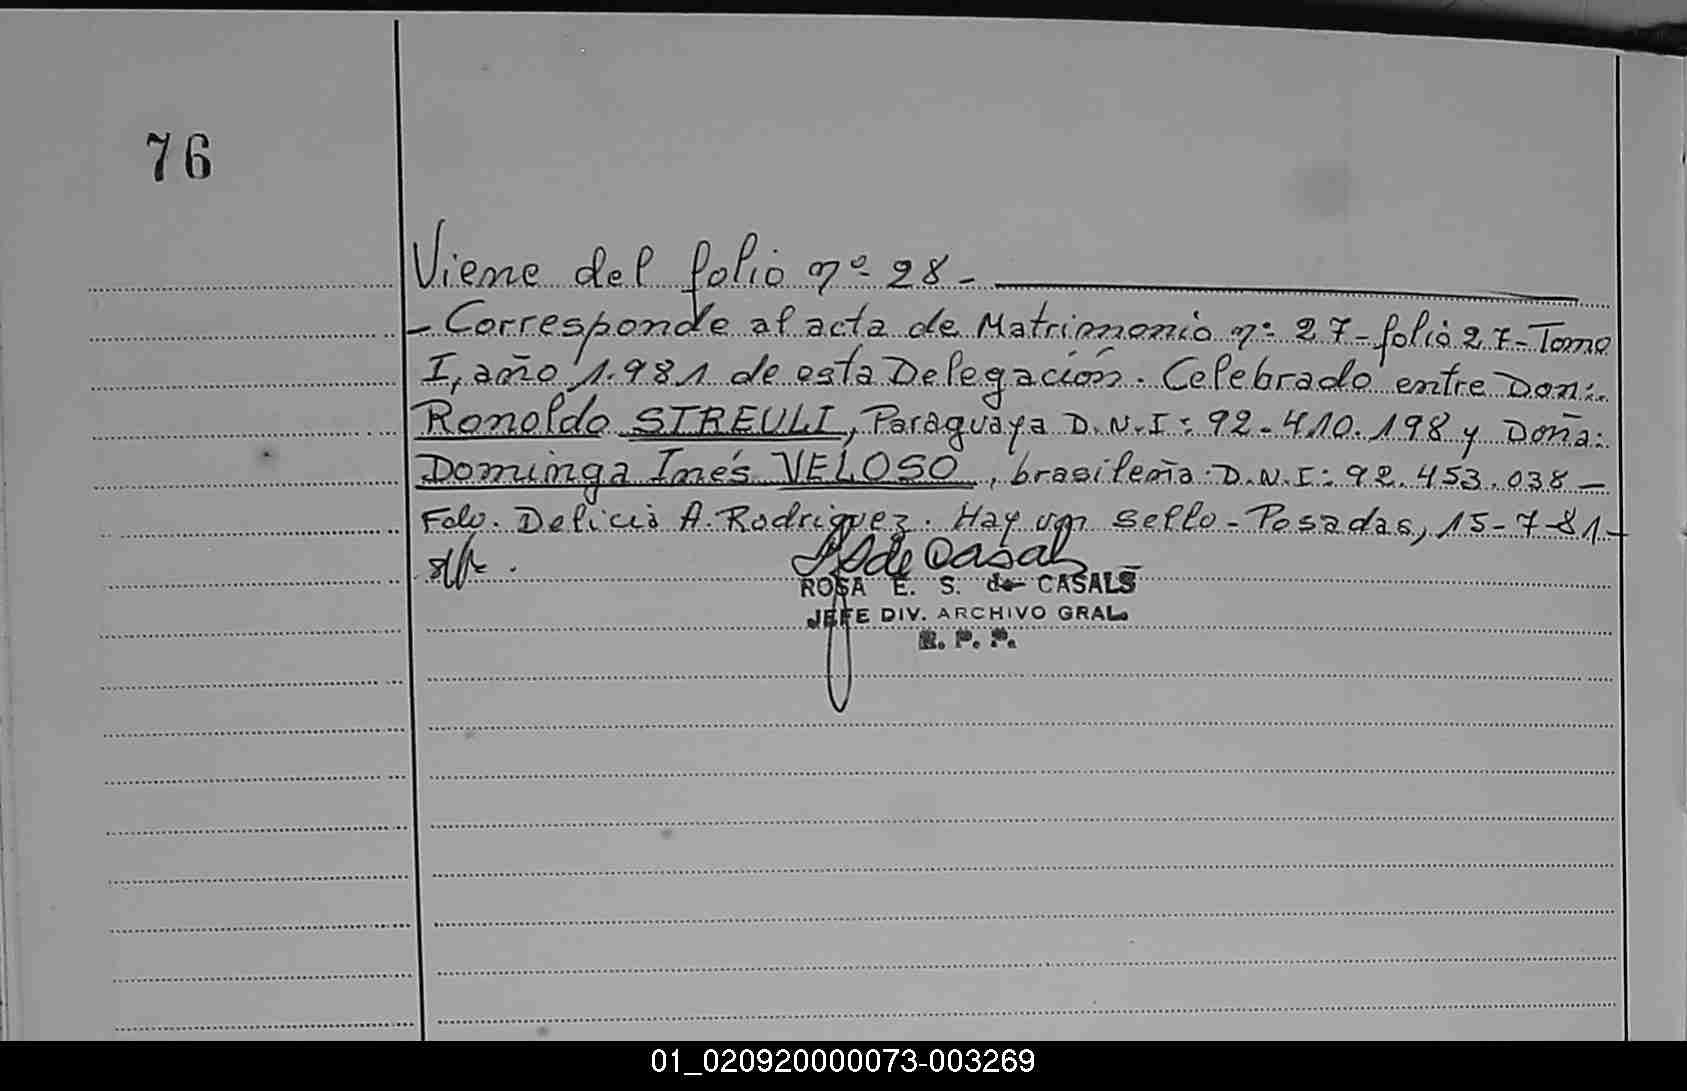 76
Viene del folio nº 28-
- Corresponde al acta de Matrimonio nº 27-folio 27-Tomo
I, año 1.981 de esta Delegación. Celebrado entre Don:
Ronoldo STREULI, Paraguaya D.N.I: 92.410.198 y Doña:
Dominga Inés VELOSO, brasileña. D.N.I: 92.453.038-
Fdo. Delicia A. Rodriguez. Hay un sello-Posadas, 15-7-81-
de Casals
ROSA E. S. de CASALS
JEFE DIV. ARCHIVO GRAL.
R. P. P.
01_020920000073-003269